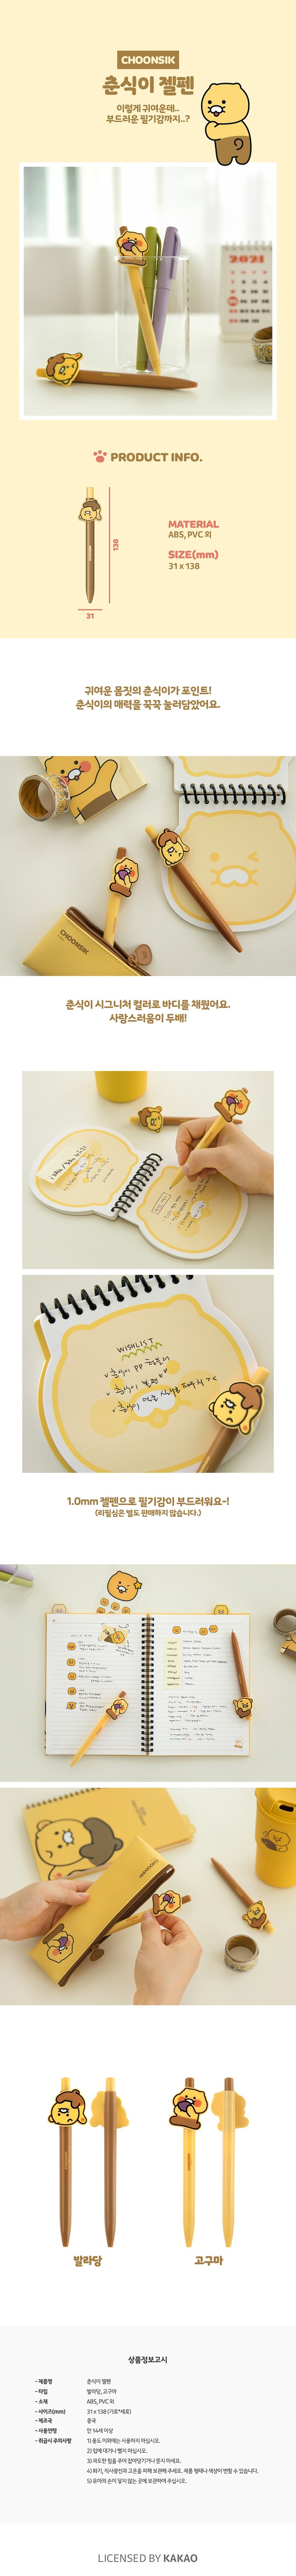 CHOONSIK
춘식이 젤펜
이렇게 귀여운데..
부드러운 필기감까지..?
2021
PRODUCT INFO.
138
31
MATERIAL
ABS, PVC 외
SIZE(mm)
31 x 138
귀여운 몸짓의 춘식이가 포인트!
춘식이의 매력을 꾹꾹 눌러담았어요.
CHOONSIK
춘식이 시그니처 컬러로 바디를 채웠어요.
사랑스러움이 두배!
WISHLIST
1.0mm 젤펜으로 필기감이 부드러워요~!
(리필심은 별도 판매하지 않습니다.)
CHOONSIK
발라당
고구마
상품정보고시
- 제품명 춘식이 젤펜
- 타입 발라당, 고구마
- 소재 ABS, PVC 외
- 사이즈(mm) 31 x 138 (가로*세로)
- 제조국 중국
- 사용연령 만 14세 이상
- 취급시 주의사항 1) 용도 이외에는 사용하지 마십시오.
2) 입에 대거나 빨지 마십시오.
3) 과도한 힘을 주어 잡아당기거나 뜯지 마세요.
4) 화기, 직사광선과 고온을 피해 보관해 주세요. 제품 형태나 색상이 변할 수 있습니다.
5) 유아의 손이 닿지 않는 곳에 보관하여 주십시오.
LICENSED BY KAKAO